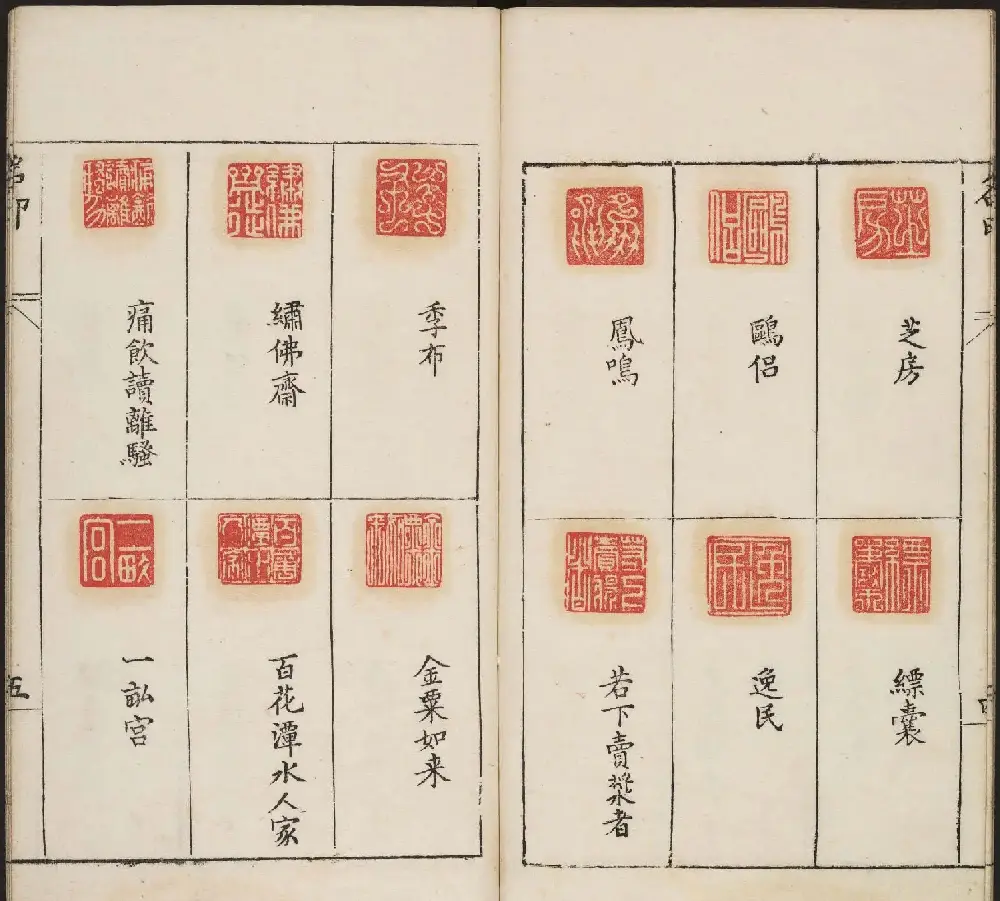 芝房
鷗侣
鳳鳴
縹囊
逸民
若下賣漿者
季布
繡佛齋
痛飲讀離騷
金粟如来
百花潭水人家
一畝宮
伍